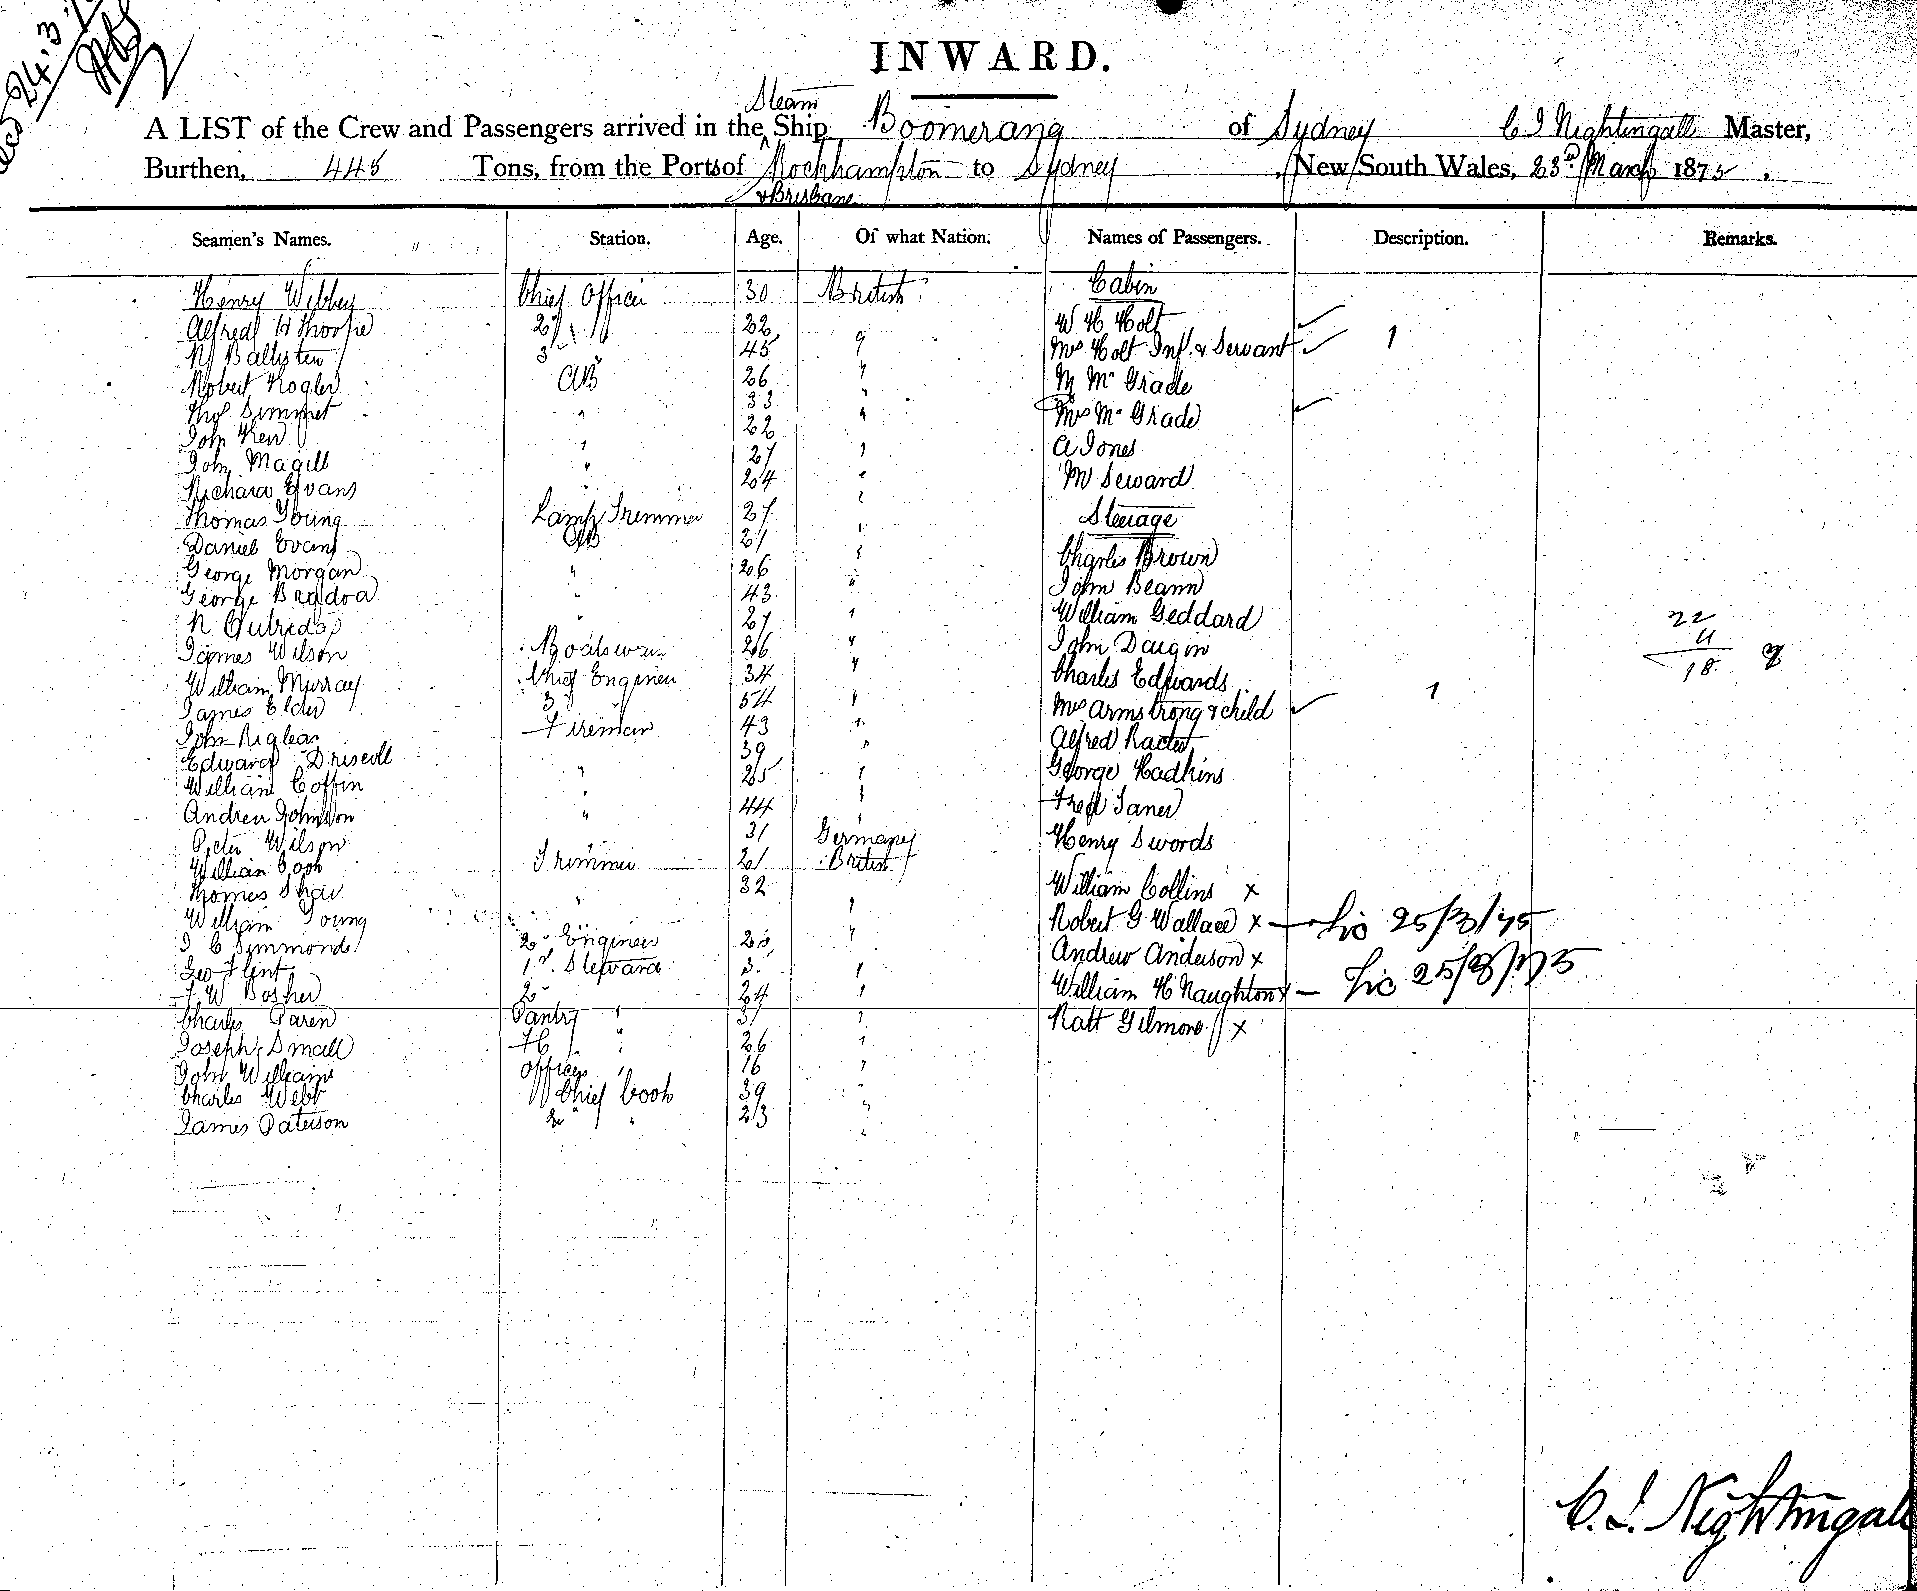 24.3.
INWARD.
Steam
A LIST of the Crew and Passengers arrived in the Ship Boomerang of Sydney C I Nightingall Master,
Burthen, 445 Tons, from the Ports of Rockhampton to Sydney, New South Wales, 23rd March 1875.
& Brisbane
Seamen's Names. Station. Age. Of what Nation. Names of Passengers. Description. Remarks.
Henry Webbey Chief Officer 30 British Cabin
Alfred W Thorpe 2 " 22 W H Holt
3 " 45 " Mrs Holt Inf. & Servant 1
Robert AB 26 " M McGrade
Thos " 33 " Mrs McGrade
John " 22 " A Jones
John Magill " 27 " M Seward
Richard Evans " 24 "
Thomas Young Lamp Trimmer 27 " Steerage
Daniel Evans AB 21 " Charles Brown
George Morgan " 26 " John Beann
George " 43 " William Geddard
N " 27 " John Daigin
James Wilson Boatswain 26 " Charles Edwards
William Murray Chief Engineer 34 " Mrs Armstrong & child 1
James Elder 3 54 " Alfred
John Fireman 43 " George Hadkins
Edward Driscoll " 39 " Fred
William Coffin " 25 " Henry Swords
Andrew Johnston " 44 " William Collins x
Peter Wilson " 31 Germany Robert G Wallace x 25/3/75
William Cook Trimmer 21 British Andrew Anderson x
Thomas Shaw " 32 " William H Naughton x 25/3/75
William Young " Matt Gilmore x
J C Simmonds 2nd Engineer "
Geo Flint 1st Steward "
F W Bosher 2 24 "
Charles Paren Pantry " "
Joseph Small " 26 "
John Williams Officers " 16 "
Charles Webb Chief Cook 39 "
James Paterson 2 " 23 "
22
18
C. I. Nightingall